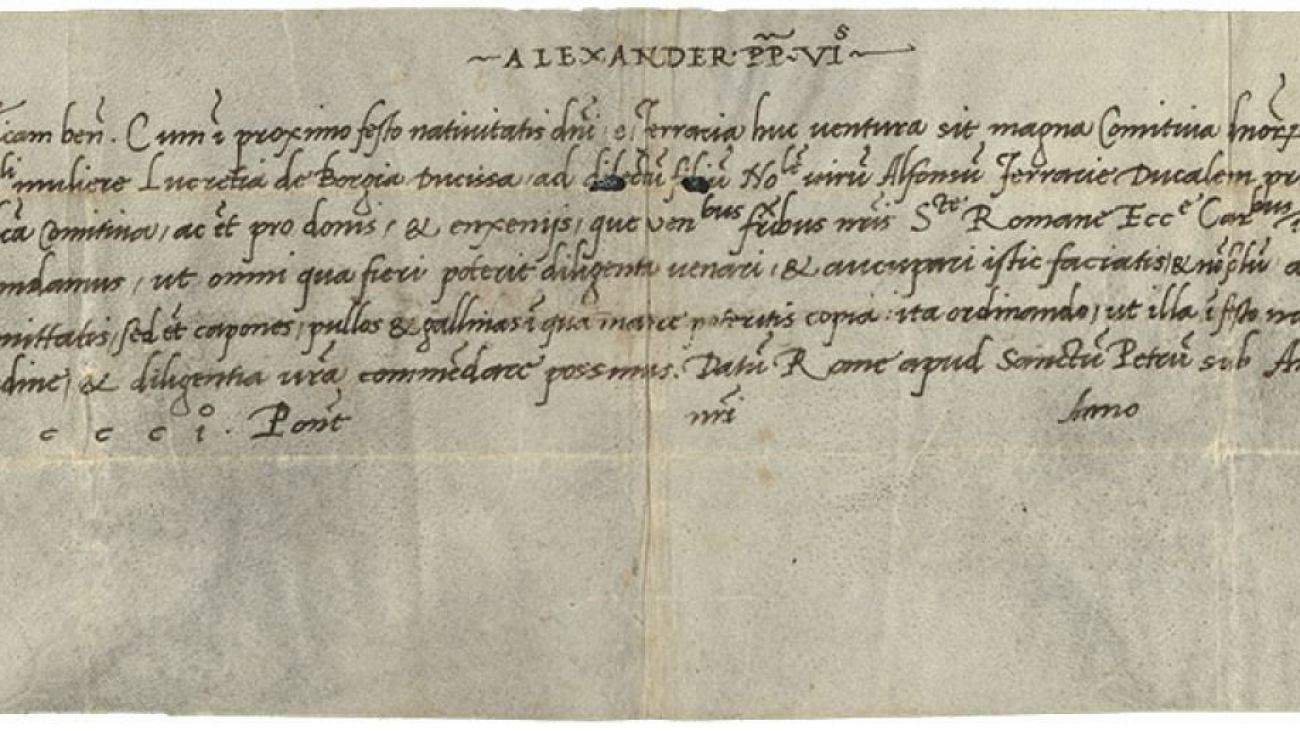 ~ALEXANDER·PP̃·VIˢ~
icam beñ. Cum ĩ proximo festo nativitatis dñi e ferraria huc ventura sit magna Comitiva
muliere Lucretia de Borgia Ducissa, ad dilectũ filiũ Noˡᵉ virũ Alfonsũ Ferrarie Ducalem
Comitiva, ac et̃ pro donis, & enxenijs, que venᵇᵘˢ fr̃ibus nr̃is Sᵗᵉ Romane Eccᵉ Carᵇᵘˢ
mdamus, ut omni qua fieri poterit diligentia venari, & aucupari istic faciatis,
mittatis, sed et̃ capones, pullos & gallinas ĩ qua maiore poteritis copia ita ordinando, ut illa ĩ festo
dine, & diligentia vr̃a commẽdare possimus. Datũ Rome apud Sanctũ Petrũ sub
c c c i°. Pont̃ nr̃i Anno